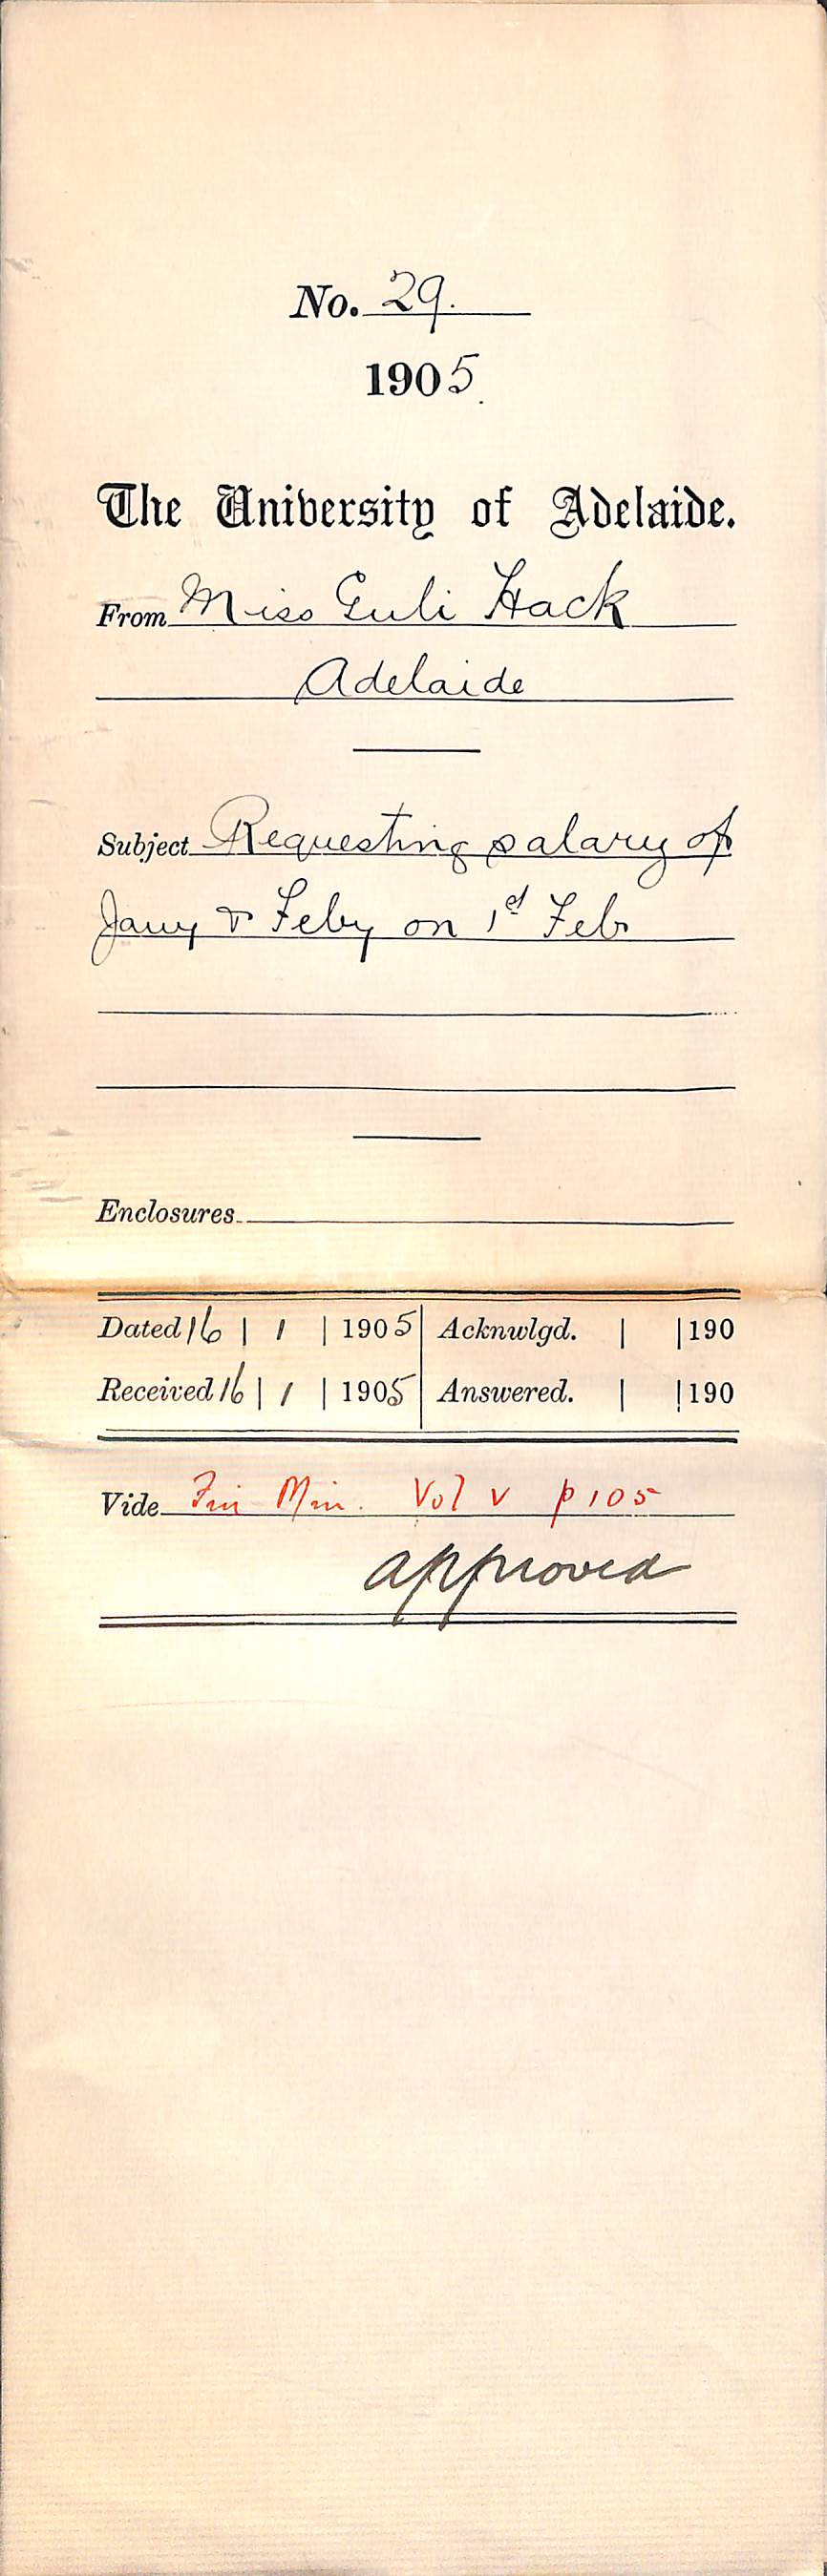 No. 29.
1905.
The University of Adelaide.
From Miss Guli Hack
Adelaide
Subject Requesting salary of
Jany & Feby on 1st Feb
Enclosures
Dated 16 | 1 | 1905 | Acknwlgd. | | 190
Received 16 | 1 | 1905 | Answered. | | 190
Vide Fin Min. Vol V p 105
approved